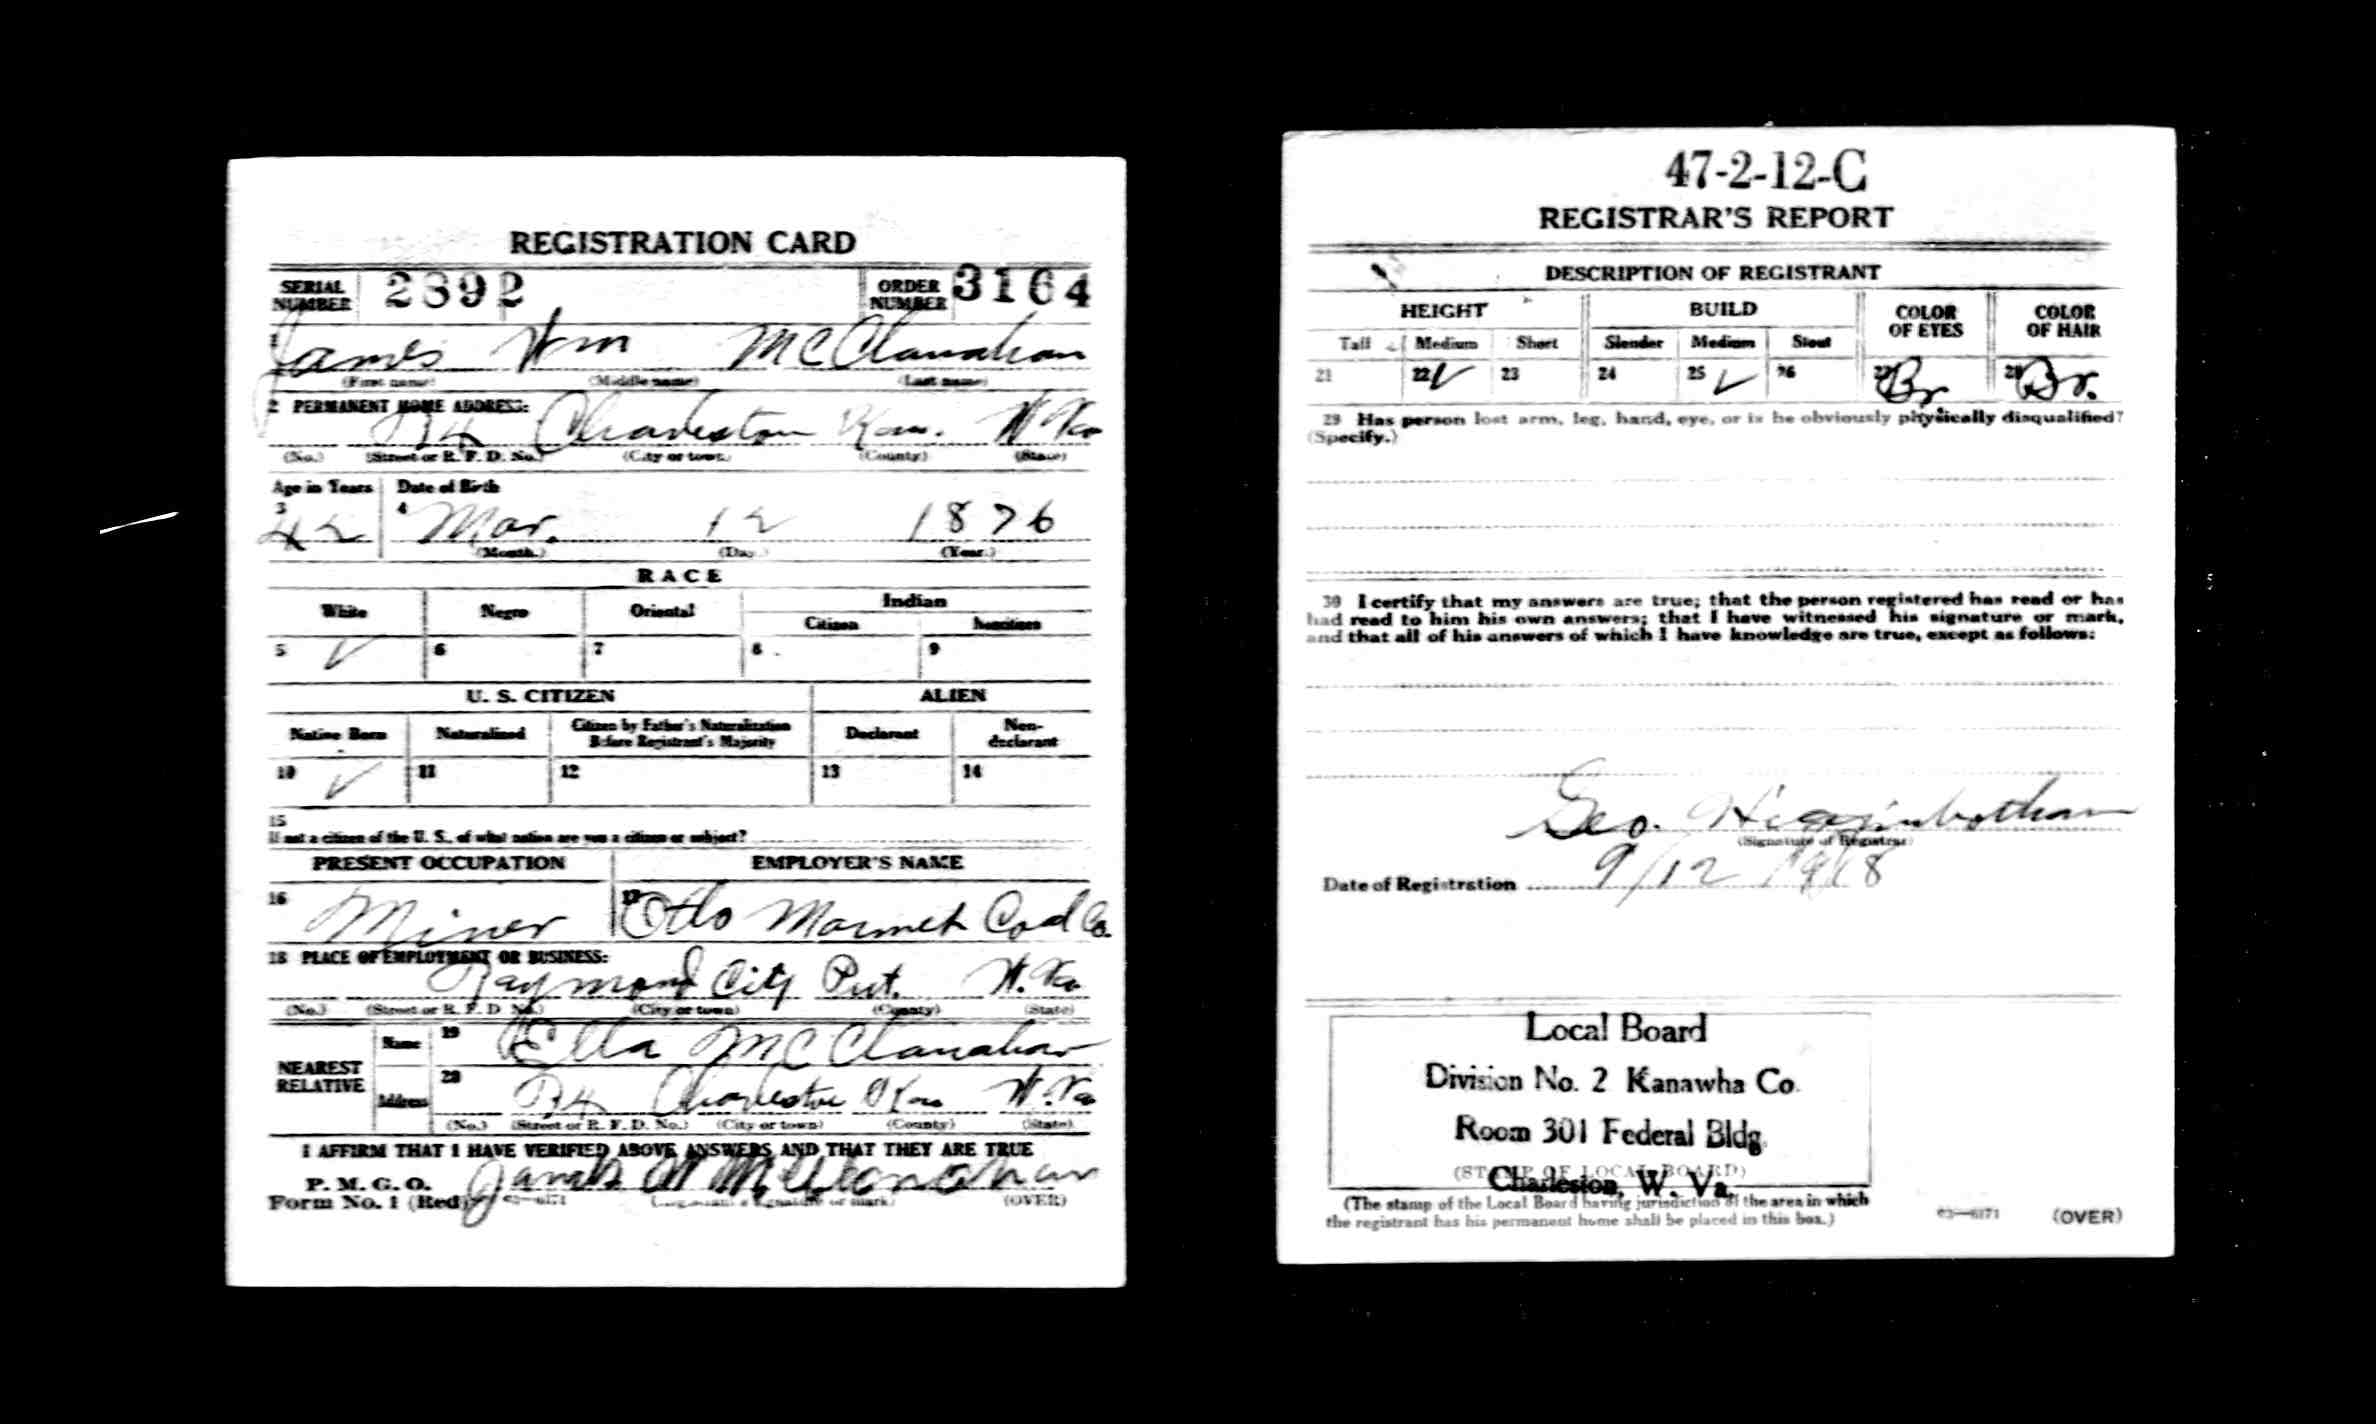 REGISTRATION CARD
SERIAL NUMBER 2892 ORDER NUMBER 3164
1 James Wm McClanahan
(First name) (Middle name) (Last name)
2 PERMANENT HOME ADDRESS:
R4 Charleston Kan. W Va
(No.) (Street or R. F. D. No.) (City or town) (County) (State)
Age in Years Date of Birth
3 42 4 Mar. 12 1876
(Month.) (Day.) (Year.)
RACE
White Negro Oriental Indian
Citizen Noncitizen
5 ✓ 6 7 8 9
U. S. CITIZEN ALIEN
Native Born Naturalized Citizen by Father's Naturalization Before Registrant's Majority Declarant Non-declarant
10 ✓ 11 12 13 14
15
If not a citizen of the U. S., of what nation are you a citizen or subject?
PRESENT OCCUPATION EMPLOYER'S NAME
16 Miner 17 Otto Marmet Coal Co.
18 PLACE OF EMPLOYMENT OR BUSINESS:
Raymond City Put. W. Va
(No.) (Street or R. F. D. No.) (City or town) (County) (State)
NEAREST RELATIVE
Name 19 Ella McClanahan
Address 20 R4 Charleston Kan W. Va
(No.) (Street or R. F. D. No.) (City or town) (County) (State)
I AFFIRM THAT I HAVE VERIFIED ABOVE ANSWERS AND THAT THEY ARE TRUE
P. M. G. O.
Form No. 1 (Red) 03—6171 James W McClanahan (Registrant's signature or mark) (OVER)
47-2-12-C
REGISTRAR'S REPORT
DESCRIPTION OF REGISTRANT
HEIGHT BUILD COLOR OF EYES COLOR OF HAIR
Tall Medium Short Slender Medium Stout
21 22 ✓ 23 24 25 ✓ 26 27 Br 28 Br.
29 Has person lost arm, leg, hand, eye, or is he obviously physically disqualified?
(Specify.)
30 I certify that my answers are true; that the person registered has read or has
had read to him his own answers; that I have witnessed his signature or mark,
and that all of his answers of which I have knowledge are true, except as follows:
Geo. Higginbotham
(Signature of Registrar)
Date of Registration 9/12 1918
Local Board
Division No. 2 Kanawha Co.
Room 301 Federal Bldg.
(STAMP OF LOCAL BOARD)
Charleston, W. Va.
(The stamp of the Local Board having jurisdiction of the area in which
the registrant has his permanent home shall be placed in this box.)
03—6171 (OVER)